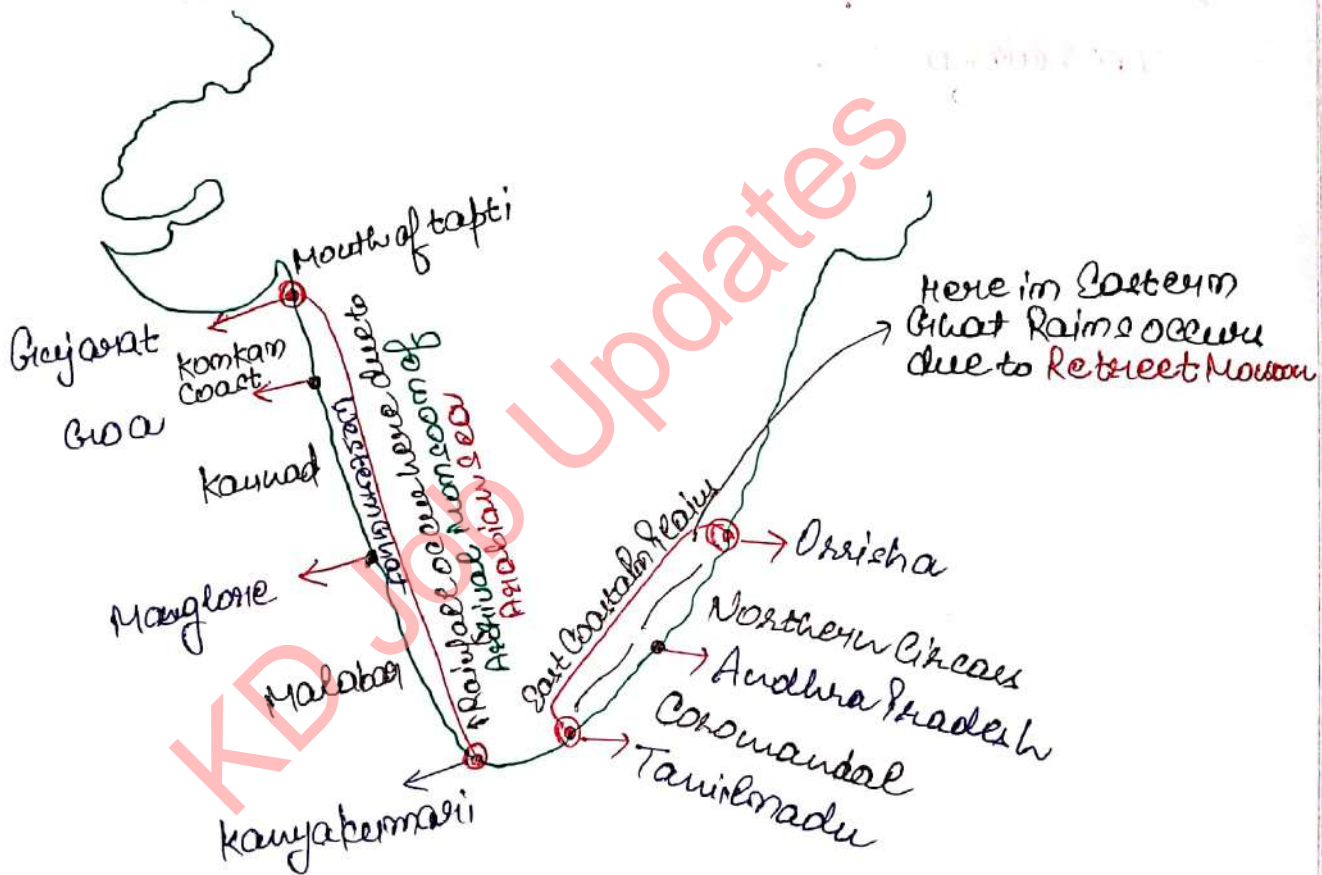 Mouth of tapti
Gujarat
Konkan
Coast
Goa
Kannad
Manglore
Malabar
Kanyakumari
Western Ghat
Rainfall occur here due to
Arrival Monsoon of
Arabian Sea
KD Job Updates
East Coastaln Plains
Here in Eastern
Ghat Rains occurs
due to Retreet Monsoon
Orrisha
Northern Circars
Andhra Pradesh
Coromandal
Tamilnadu